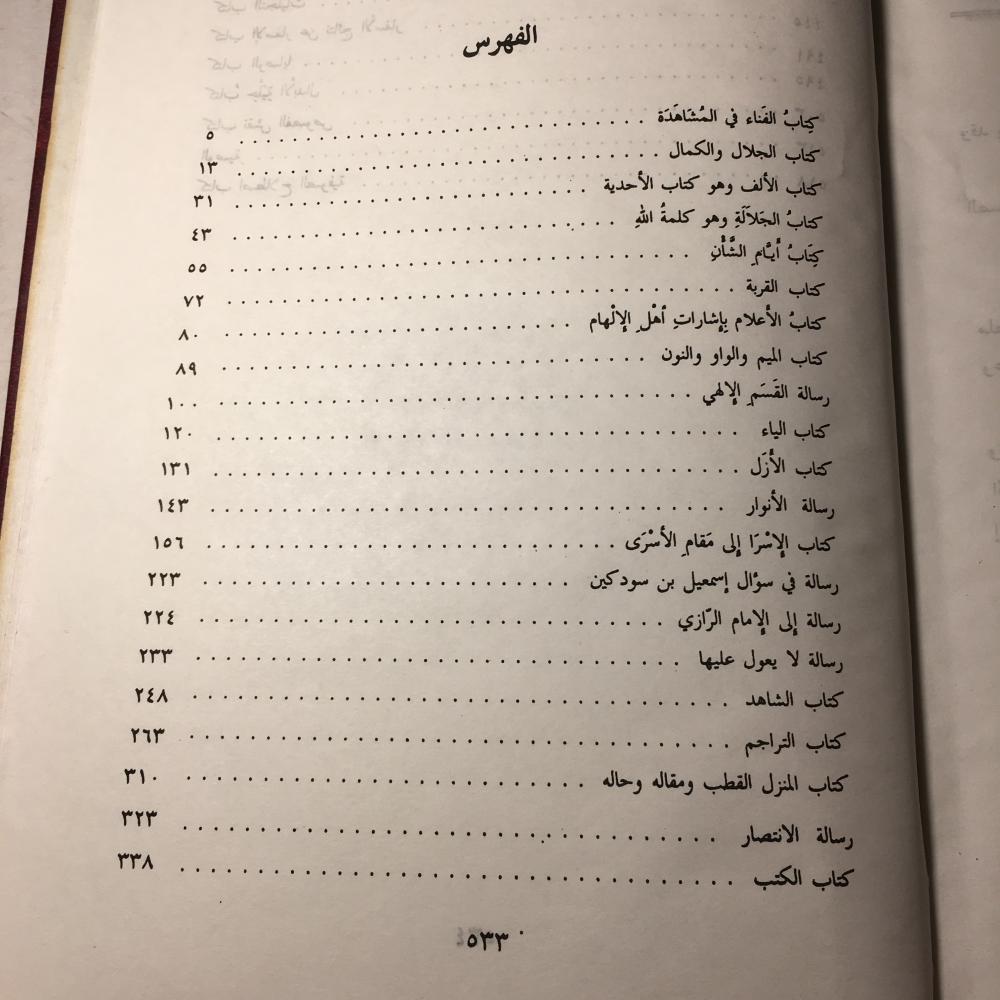 الفهرس
كتابُ الفَناء في المُشَاهَدَة . . . . . . . . . . . . . . . . . . . . ٥
كتاب الجلال والكمال . . . . . . . . . . . . . . . . . . . . ١٣
كتاب الألف وهو كتاب الأحدية . . . . . . . . . . . . . . . . . . . . ٣١
كتابُ الجَلاَلَةِ وهو كلمةُ اللهِ . . . . . . . . . . . . . . . . . . . . ٤٣
كِتَابُ أَيَّامِ الشَّأْنِ . . . . . . . . . . . . . . . . . . . . ٥٥
كتاب القربة . . . . . . . . . . . . . . . . . . . . ٧٢
كتابُ الأَعلام بِإشاراتِ أهْلِ الإِلْهام . . . . . . . . . . . . . . . . . . . . ٨٠
كتاب الميم والواو والنون . . . . . . . . . . . . . . . . . . . . ٨٩
رسالة القَسَمِ الإِلهي . . . . . . . . . . . . . . . . . . . . ١٠٠
كتاب الياء . . . . . . . . . . . . . . . . . . . . ١٢٠
كتاب الأَزَل . . . . . . . . . . . . . . . . . . . . ١٣١
رسالة الأنوار . . . . . . . . . . . . . . . . . . . . ١٤٣
كتاب الإِسْرَا إلى مَقامِ الأَسْرَى . . . . . . . . . . . . . . . . . . . . ١٥٦
رسالة في سؤال إسمعيل بن سودكين . . . . . . . . . . . . . . . . . . . . ٢٢٣
رسالة إلى الإمام الرّازي . . . . . . . . . . . . . . . . . . . . ٢٢٤
رسالة لا يعول عليها . . . . . . . . . . . . . . . . . . . . ٢٣٣
كتاب الشاهد . . . . . . . . . . . . . . . . . . . . ٢٤٨
كتاب التراجم . . . . . . . . . . . . . . . . . . . . ٢٦٣
كتاب المنزل القطب ومقاله وحاله . . . . . . . . . . . . . . . . . . . . ٣١٠
رسالة الانتصار . . . . . . . . . . . . . . . . . . . . ٣٢٣
كتاب الكتب . . . . . . . . . . . . . . . . . . . . ٣٣٨
٥٣٣